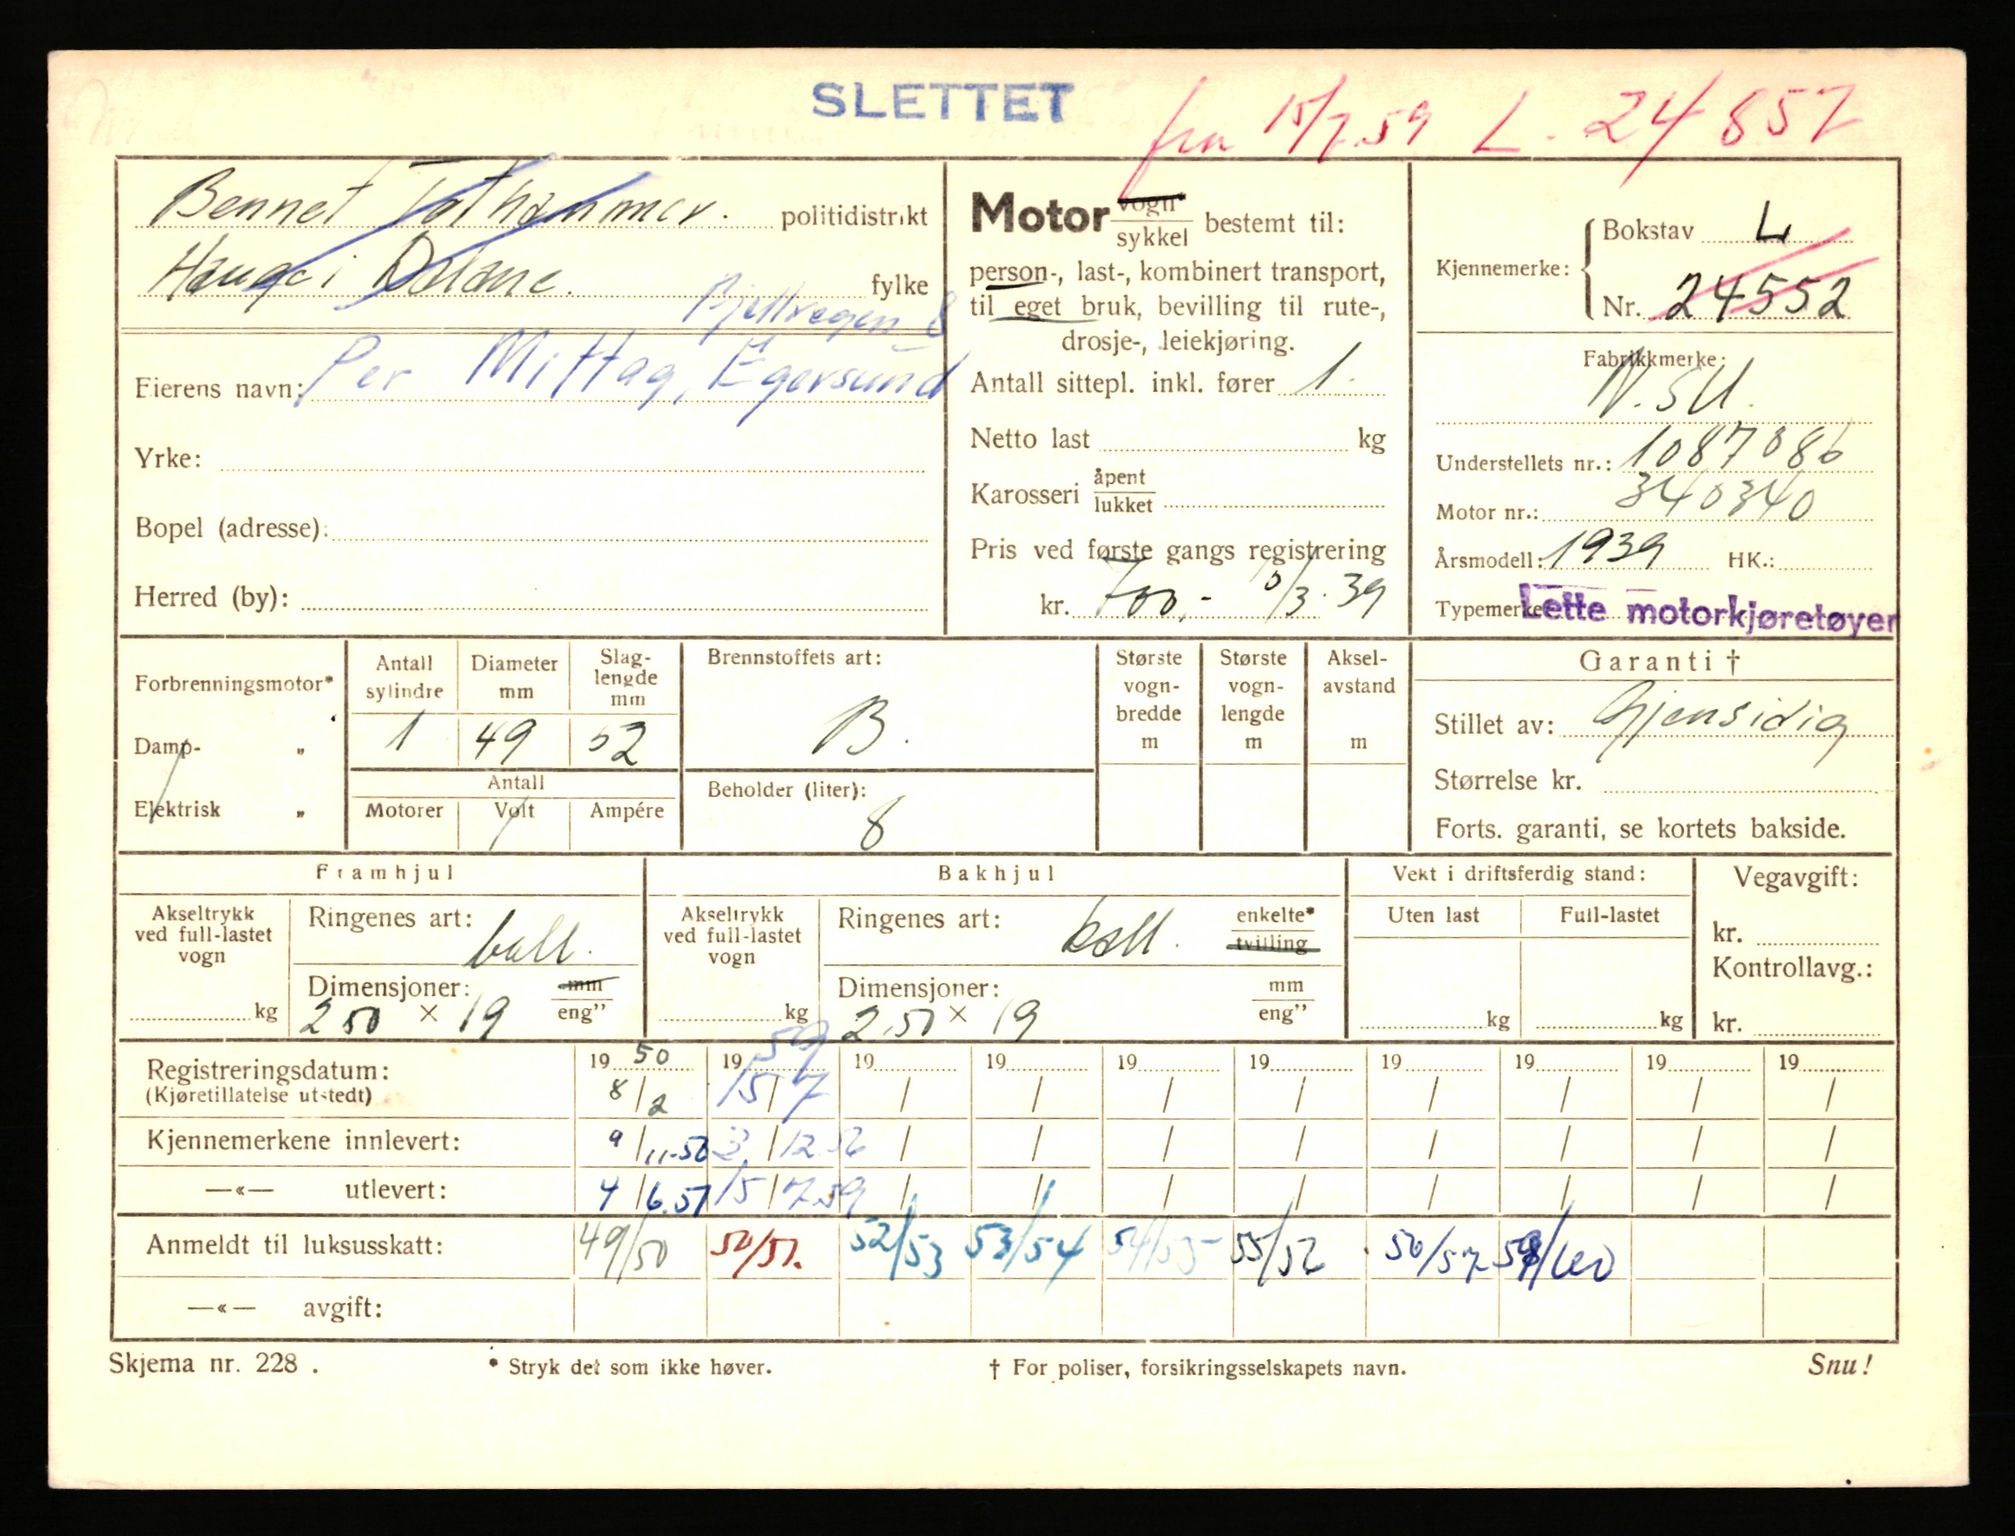 SLETTET
fra 15/7.59 L. 24 857
Bennet politidistrikt
Hauge i Dalane. fylke
8
Eierens navn: Per Mittag, Egersund
Yrke:
Bopel (adresse):
Herred (by):
Motor vogn/sykkel bestemt til:
person-, last-, kombinert transport,
til eget bruk, bevilling til rute-,
drosje-, leiekjøring.
Antall sittepl. inkl. fører 1.
Netto last kg
Karosseri åpent/lukket
Pris ved første gangs registrering
kr. 700,- 10/3.39
Kjennemerke: Bokstav L
Nr. 24552
Fabrikkmerke:
N.S.U.
Understellets nr.: 1087086
Motor nr.: 340340
Årsmodell: 1939 HK.:
Typemerke Lette motorkjøretøyer
Forbrenningsmotor*
Damp- „
Elektrisk „
Antall sylindre 1
Diameter mm 49
Slag-lengde mm 52
Antall
Motorer Volt Ampére
Brennstoffets art:
B.
Beholder (liter):
8
Største vogn-bredde m
Største vogn-lengde m
Aksel-avstand m
Garanti †
Stillet av: Gjensidig
Størrelse kr.
Forts. garanti, se kortets bakside.
Framhjul
Akseltrykk ved full-lastet vogn kg
Ringenes art: ball.
Dimensjoner: mm/eng”
2 50 × 19
Bakhjul
Akseltrykk ved full-lastet vogn kg
Ringenes art: ball. enkelte*/tvilling
Dimensjoner: mm/eng”
2.50 × 19
Vekt i driftsferdig stand:
Uten last Full-lastet
kg kg
Vegavgift:
kr.
Kontrollavg.:
kr.
Registreringsdatum: 19 50 19 59 19 19 19 19 19 19 19 19
(Kjøretillatelse utstedt) 8/2 15/7 / / / / / / / /
Kjennemerkene innlevert: 9/11-56 3/12.56 / / / / / / / /
—«— utlevert: 4/6.57 15/7.59 / / / / / / / /
Anmeldt til luksusskatt: 49/50 50/51. 52/53 53/54 54/55 55/56 56/57 59/60
—«— avgift:
Skjema nr. 228 . * Stryk det som ikke høver. † For poliser, forsikringsselskapets navn. Snu!